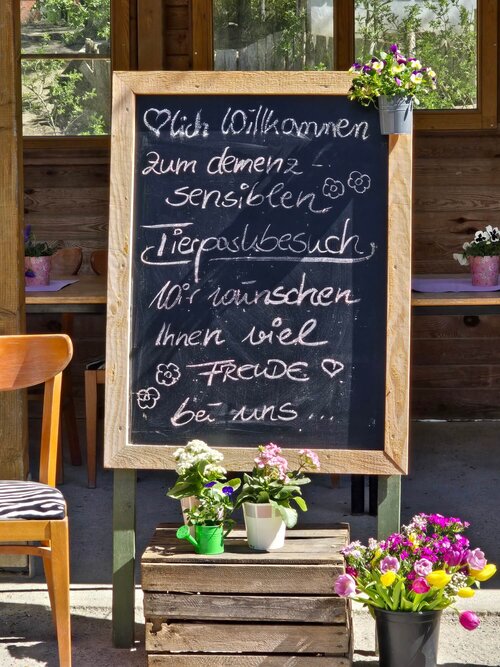 ♡lich Willkommen
zum demenz-
sensiblen
Tierparkbesuch,
Wir wünschen
Ihnen viel
FREUDE ♡
bei uns ...